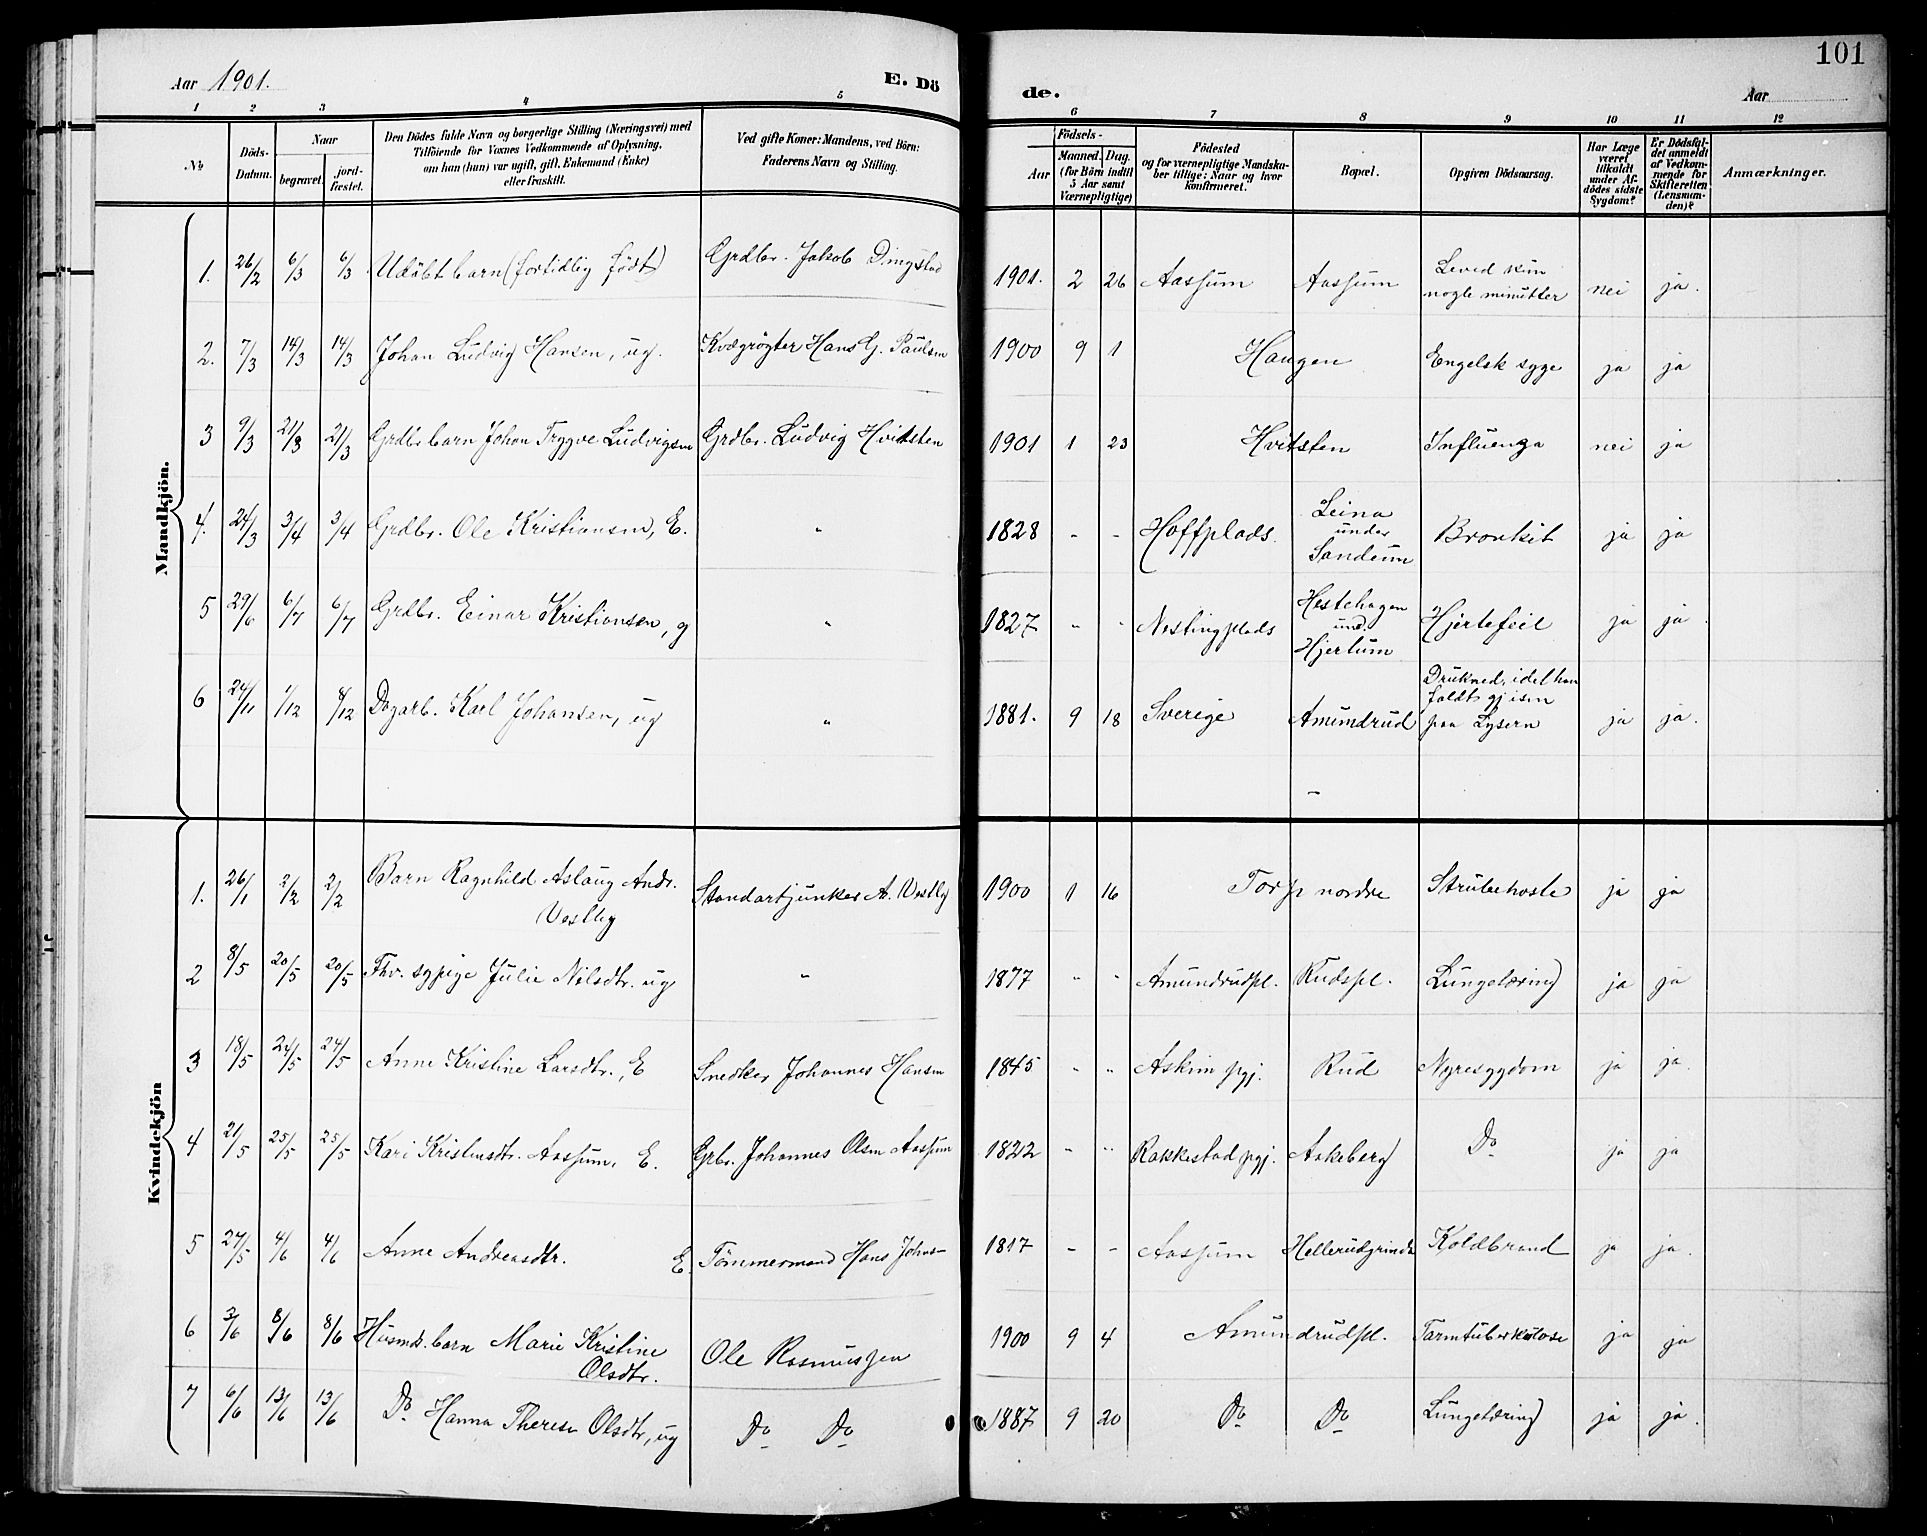 Aar 1901.
E. Dö
de.
Aar
101
1 2 3 4 5 6 7 8 9 10 11 12
No
Döds-Datum.
Naar
begravet.
jord-fæstet.
Den Dödes fulde Navn og borgerlige Stilling (Næringsvei) med
Tilföiende for Voxnes Vedkommende af Oplysning,
om han (hun) var ugift, gift, Enkemand (Enke)
eller fraskilt.
Ved gifte Koner: Mandens, ved Börn:
Faderens Navn og Stilling.
Födsels-
Aar
Maaned. Dag.
(for Börn indtil
5 Aar samt
Værnepligtige)
Födested
og for værnepligtige Mandska-
ber tillige: Naar og hvor
konfirmeret.
Bopæl.
Opgiven Dödsaarsag.
Har Læge
været
tilkaldt
under Af-
dödes sidste
Sygdom?
Er Dödsfal-
det anmeldt
af Vedkom-
mende for
Skifteretten
(Lensman-
den)?
Anmærkninger.
Mandkjön.
1. 26/2 6/3 6/3 Udöbt barn (fortidlig födt) Grdbr. Jakob Dingstad 1901. 2 26 Aassum Aassum Leved kun nogle minutter nei ja.
2. 7/3 14/3 14/3 Johan Ludvig Hansen, ug. Kvægrøgter Hans G. Paulsen 1900 9 1 Haugen Engelsk syge ja ja
3 9/3 21/3 21/3 Grdbr barn Johan Trygve Ludvigsen Grdbr. Ludvig Hvitsten 1901 1 23 Hvitsten Influenza nei ja
4. 24/3 3/4 3/4 Grdbr. Ole Kristiansen, E. " 1828 - - Hoffplads. Leina under Sandum Bronkit ja ja
5 29/6 6/7 6/7 Grdbr. Einar Kristiansen, g " 1827 " " Nestingplads Hestehagen und. Hjertum Hjertefeil ja ja.
6 24/11 1/12 8/12 Dagarb. Karl Johansen, ug " 1881. 9 18 Sverige Amundrud Drukned, idet han faldt gj isen paa Lysern ja ja.
Kvindekjön
1. 26/1 2/2 2/2 Barn Ragnhild Aslaug Andr. Vestby Standartjunker A. Vestby 1900 1 16 Torp nordre Strubehoste ja ja
2 8/5 20/5 20/5 Fhv. sypige Julie Nilsdtr. ug " 1877 " " Amundrudpl. Rudspl. Lungetæring ja ja
3 18/5 24/5 24/5 Anne Kristine Larsdtr., E Snedker Johannes Hansen 1845 " " Askim pgj. Rud Nyresygdom ja ja.
4 21/5 25/5 25/5 Kari Kristensdtr. Aassum. E. Grbr. Johannes Olsen Aassum 1822 - " Rakkestad pgj. Askeberg Do ja ja
5 27/5 4/6 4/6 Anne Andreasdtr. E. Tömmermand Hans Johns- 1817 - - Aassum Hellerudgrinda Koldbrand ja ja.
6 3/6 8/6 8/6 Husmds. barn Marie Kristine Olsdtr. Ole Rasmussen 1900 9 4 Amundrudpl. Tarmtuberkulose ja ja
7 6/6 13/6 13/6 Do Hanna Therese Olsdtr, ug Do Do 1887 9 20 Do Do Lungetæring ja ja.